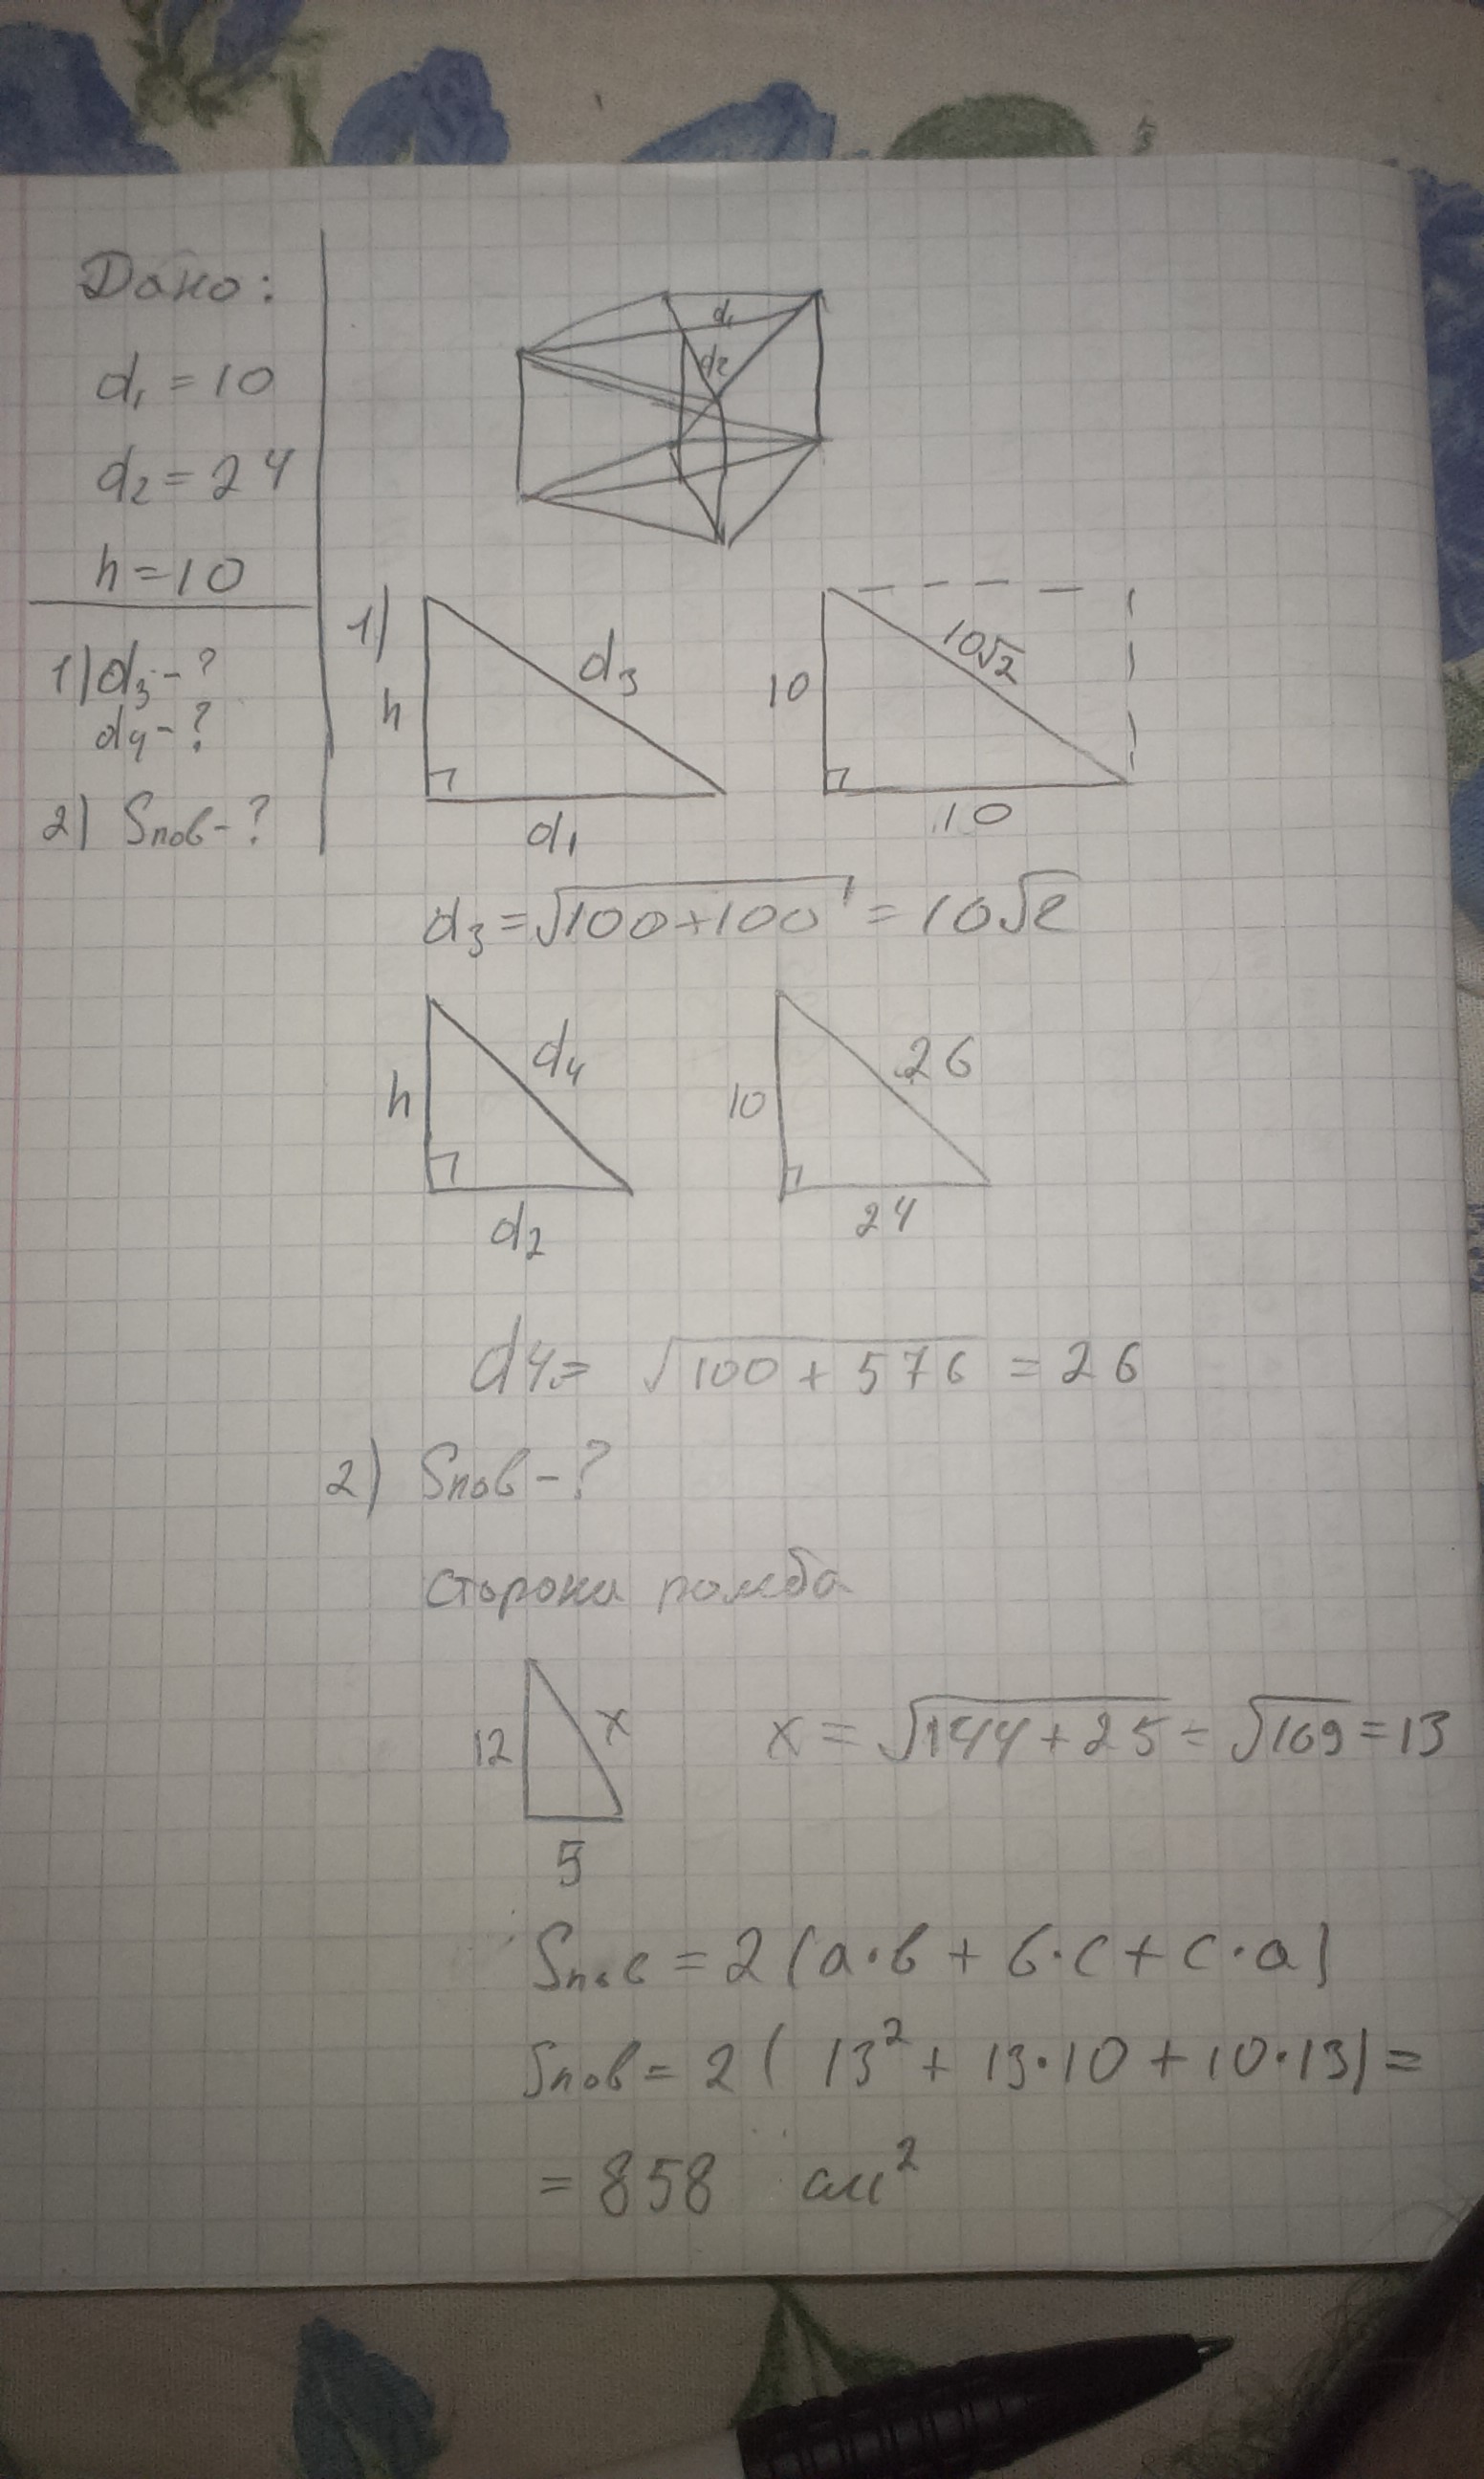 Дано:
d₁ = 10
d₂ = 24
h = 10
1) d₃ - ?
d₄ - ?
2) Sпов - ?
d₁
d₂
1)
h
d₃
d₁
10
10√2
10
d₃ = √100+100 = 10√2
h
d₄
d₂
10
26
24
d4 = √100 + 576 = 26
2) Sпов - ?
сторона ромба
12
x
5
x = √144 + 25 = √169 = 13
Sпов = 2(a·b + b·c + c·a)
Sпов = 2( 13² + 13·10 + 10·13) =
= 858 см²